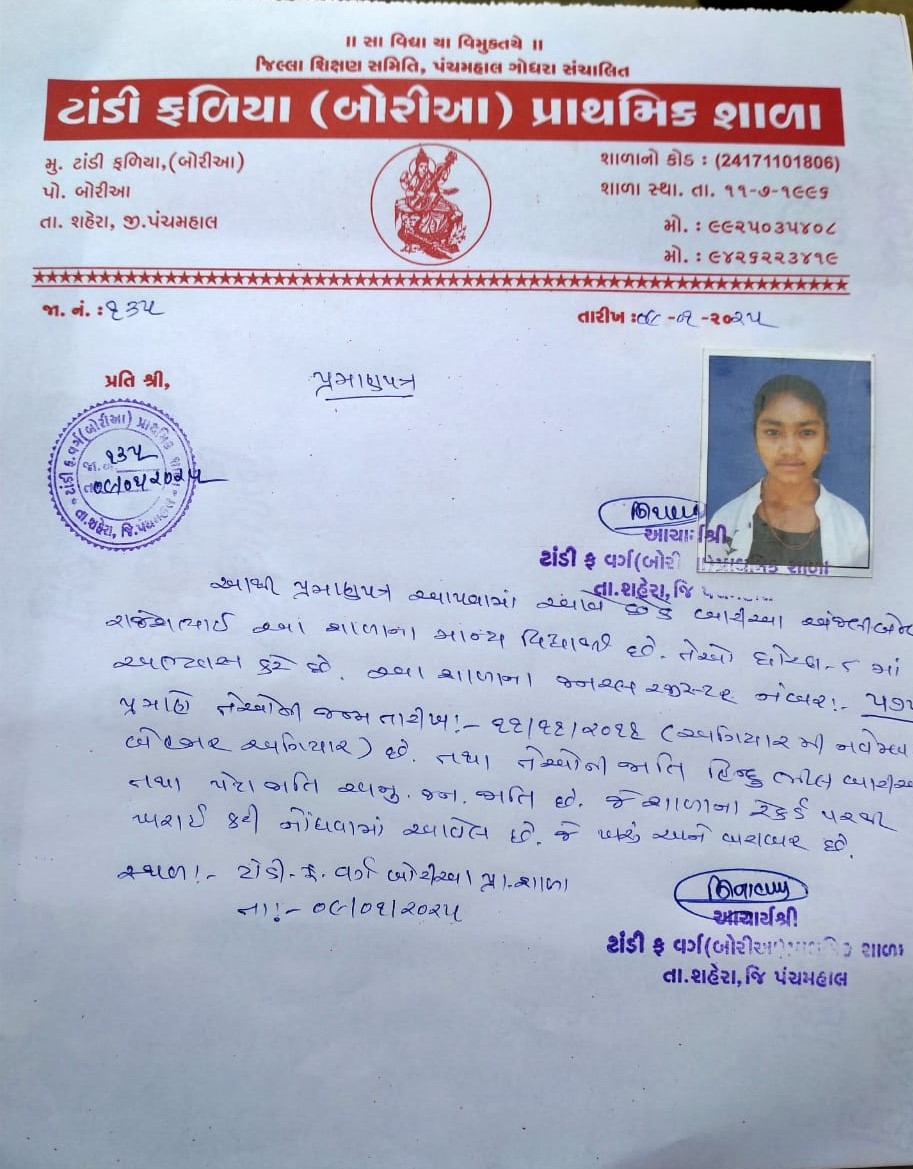 ॥ સા વિદ્યા યા વિમુક્તયે ॥
જિલ્લા શિક્ષણ સમિતિ, પંચમહાલ ગોધરા સંચાલિત
ટાંડી ફળિયા (બોરીઆ) પ્રાથમિક શાળા
મુ. ટાંડી ફળિયા,(બોરીઆ)
શાળાનો કોડ : (24171101806)
પો. બોરીઆ
શાળા સ્થા. તા. ૧૧-૭-૧૯૯૬
તા. શહેરા, જી.પંચમહાલ
મો. : ૯૯૨૫૦૩૫૪૦૮
મો. : ૯૪૨૬૨૨૩૪૧૯
જા. નં. : ૧૩૫
તારીખ : -૨૦૨૫
પ્રતિ શ્રી,
પ્રમાણપત્ર
ટાંડી ફ.વર્ગ(બોરીઆ) પ્રાથમિક શાળા
જા.નં. ૧૩૫
તા.શહેરા, જિ.પંચમહાલ
આચાર્યશ્રી
ટાંડી ફ વર્ગ(બોરી શાળા
તા.શહેરા,જિ
આથી પ્રમાણપત્ર આપવામાં આવે છે કે બારીઆ અંજલીબેન
રાજેશભાઈ આ શાળાના માન્ય વિદ્યાર્થી છે. તેઓ ધોરણ-૮ માં
અભ્યાસ કરે છે. આ શાળાના જનરલ રજીસ્ટર નંબર:-
પ્રમાણે તેઓની જન્મ તારીખ:- (અગિયાર મી નવેમ્બ
બે હજાર અગિયાર) છે. તથા તેઓની જાતિ હિન્દુ ભીલ બારીઆ
તથા પેટા જાતિ અનુ. જન. જાતિ છે. જે શાળાના રેકર્ડ પરથી
ખરાઈ કરી નોંધવામાં આવેલ છે. જે ખરું અને બરાબર છે.
સ્થળ:- ટાંડી. ફ. વર્ગ બોરીઆ પ્રા.શાળા
તા:-
આચાર્યશ્રી
ટાંડી ફ વર્ગ(બોરીઆ) શાળા
તા.શહેરા,જિ પંચમહાલ